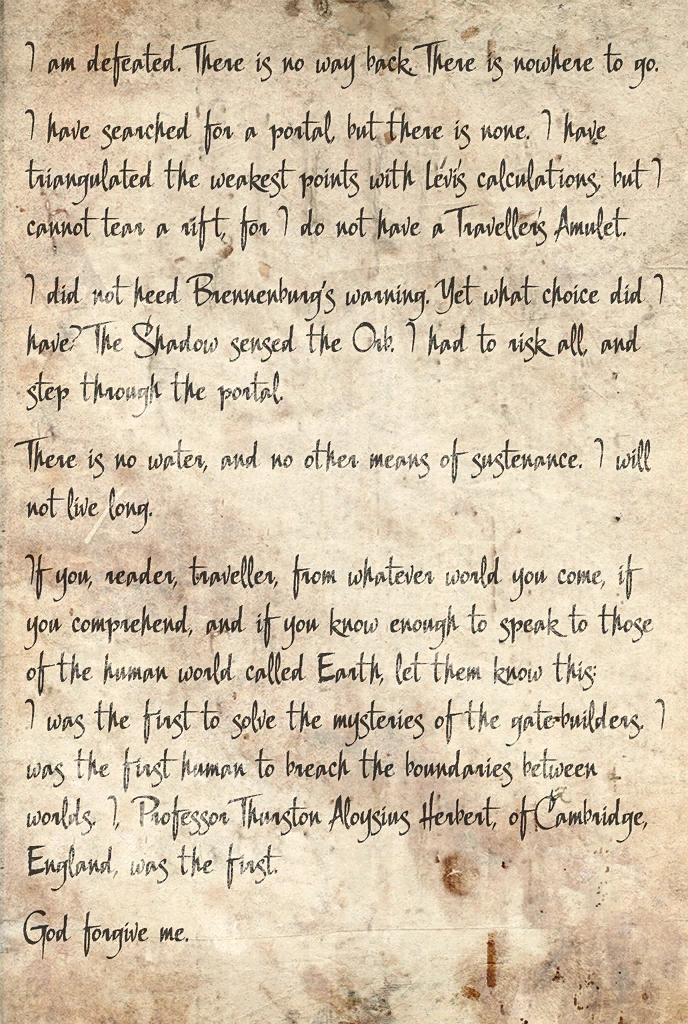 I am defeated. There is no way back. There is nowhere to go.
I have searched for a portal, but there is none. I have
triangulated the weakest points with Lévi's calculations, but I
cannot tear a rift, for I do not have a Traveller's Amulet.
I did not heed Brennenburg's warning. Yet what choice did I
have? The Shadow sensed the Orb. I had to risk all, and
step through the portal.
There is no water, and no other means of sustenance. I will
not live long.
If you, reader, traveller, from whatever world you come, if
you comprehend, and if you know enough to speak to those
of the human world called Earth, let them know this:
I was the first to solve the mysteries of the gate-builders. I
was the first human to breach the boundaries between
worlds. I, Professor Thurston Aloysius Herbert, of Cambridge,
England, was the first.
God forgive me.